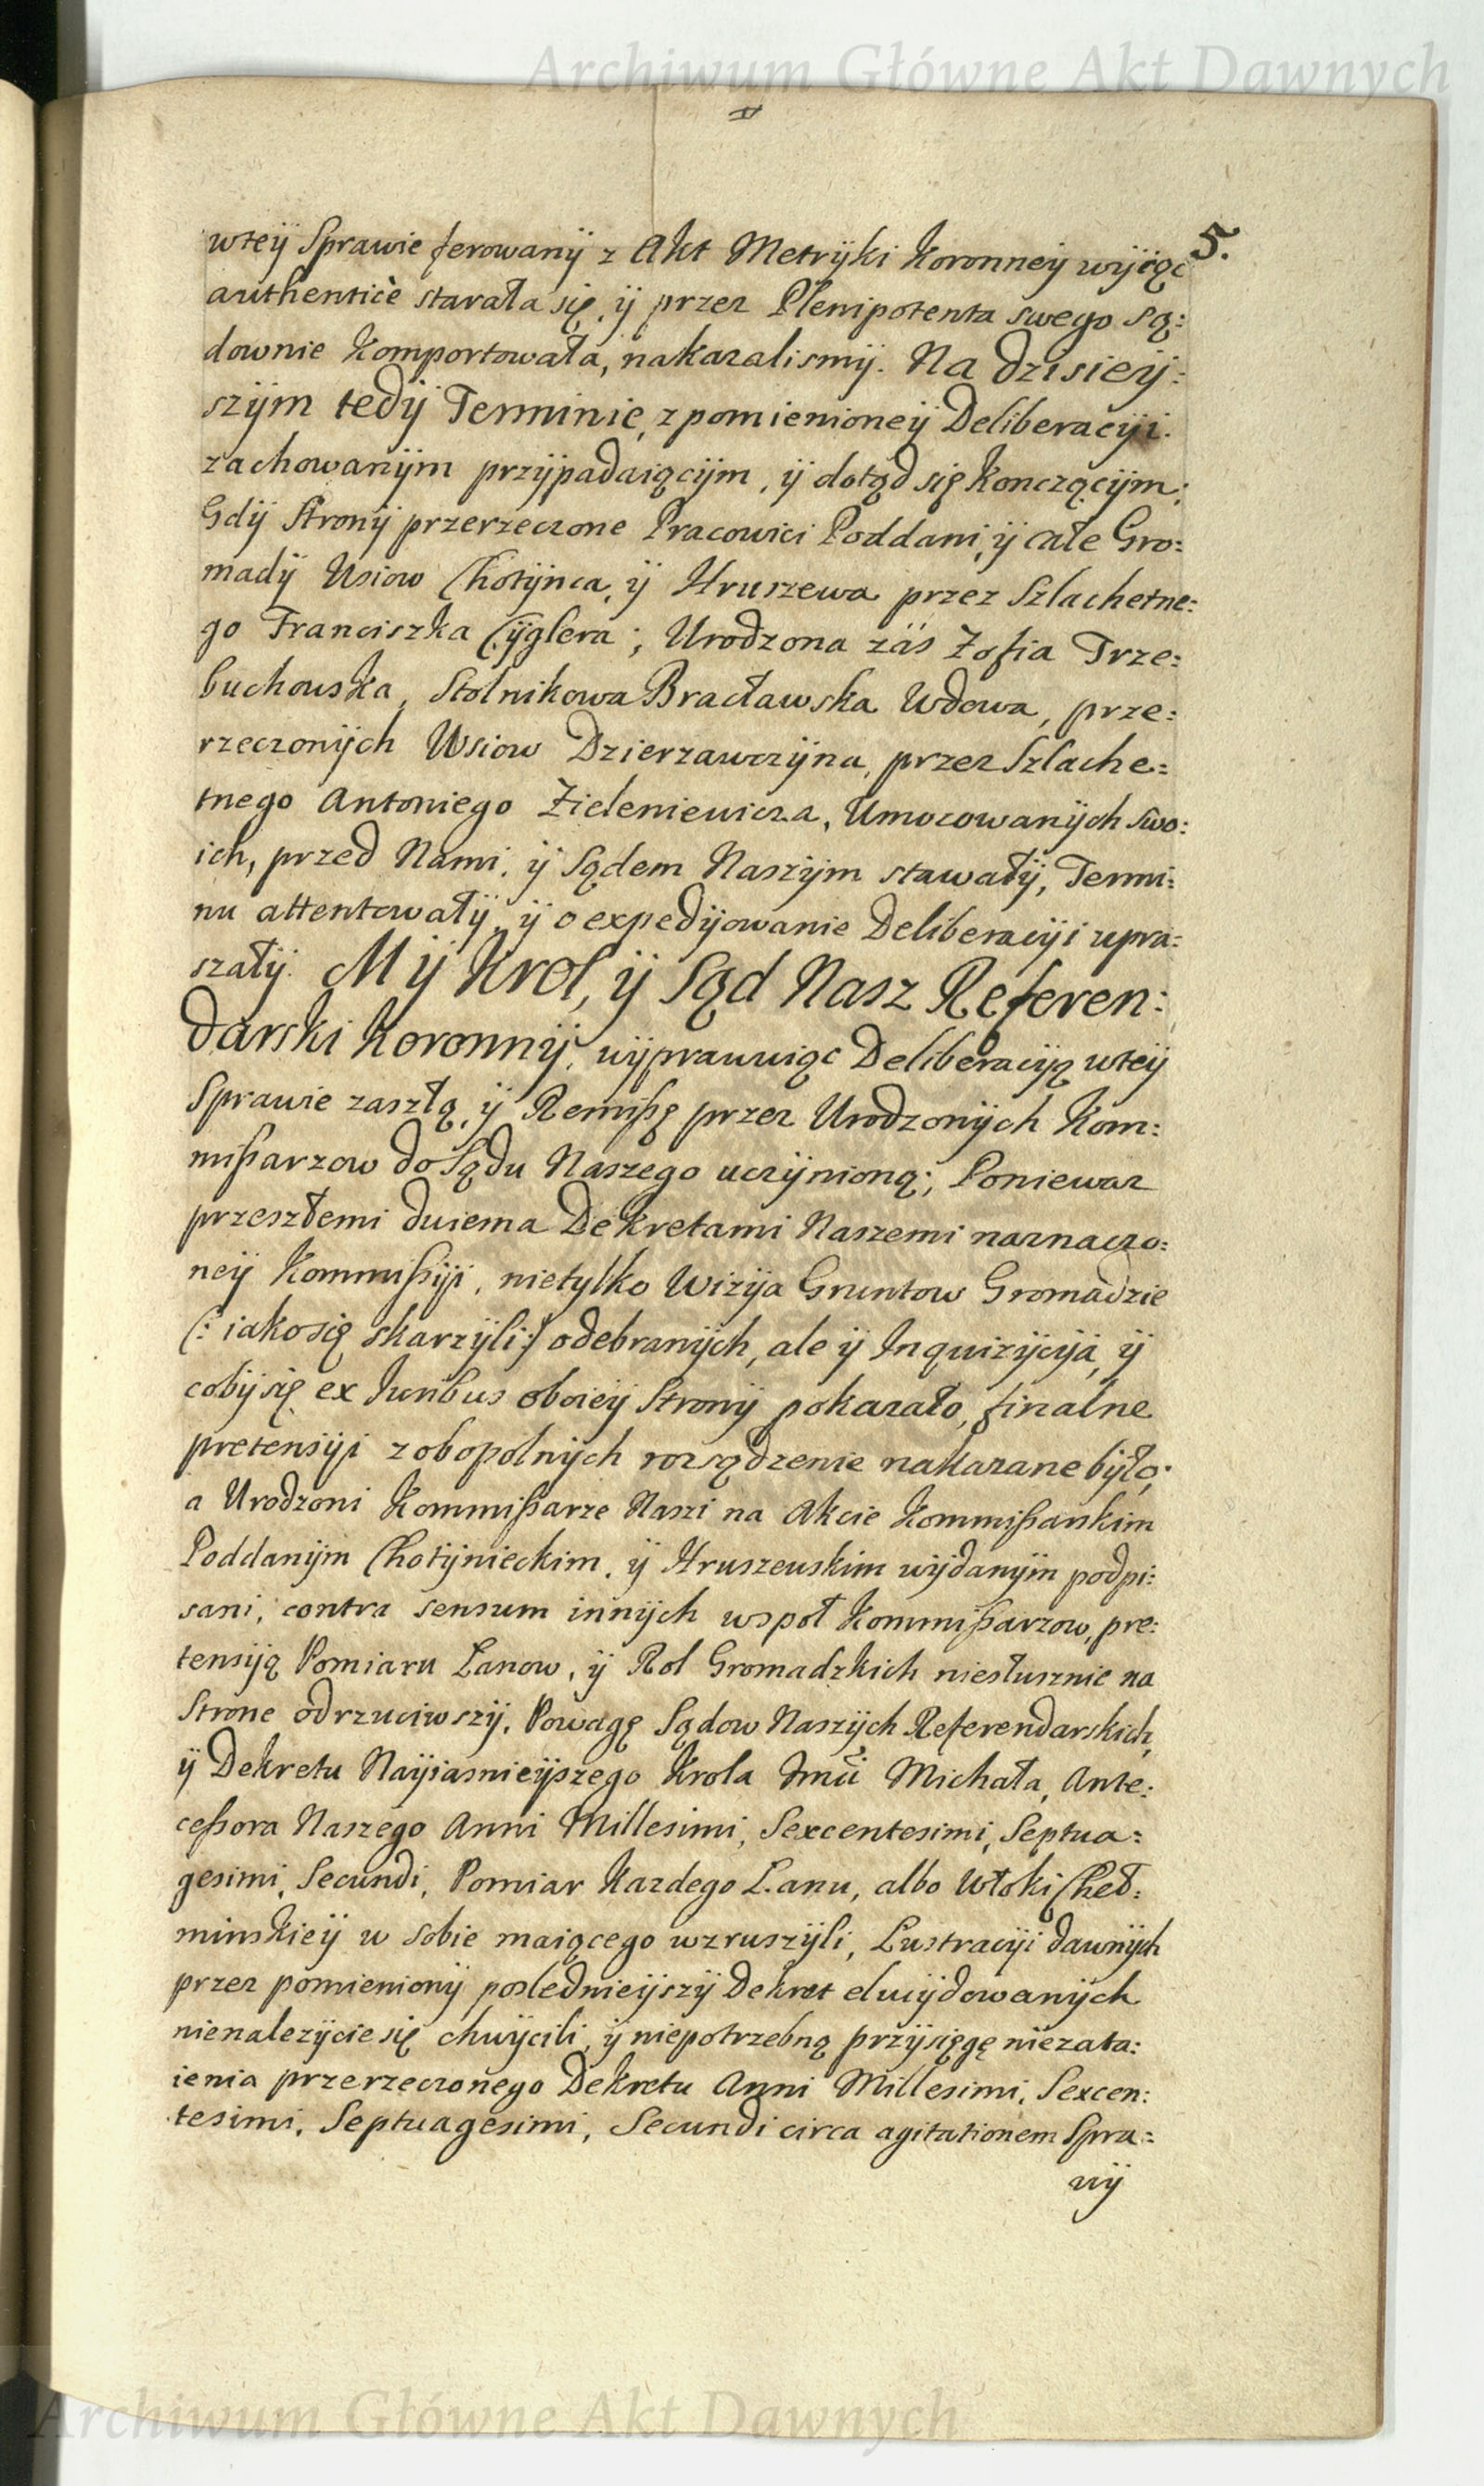 Archiwum Główne Akt Dawnych
5.
wteÿ Sprawie ferowanÿ z Akt Metrÿki Koronneÿ wÿiąc
authenticè starała się, ÿ przez Plenipotenta swego Są:
downie komportowała, nakazalismÿ. Na dzisieÿ:
szÿm tedÿ Terminie, z pomienioneÿ Deliberacÿi.
zachowanÿm przÿpadaiącÿm, ÿ dotąd się konczącÿm;
Gdÿ Stronÿ przerzeczone Pracowici Poddani, ÿ całe Gro:
madÿ Wsiow Chotÿnca, ÿ Hruszewa przez Szlachetne:
go Franciszka Cÿglera; Urodzona zás Zofia Trze:
buchowska, Stolnikowa Bracławska Wdowa, prze:
rzeczonÿch Wsiow Dzierzawczÿna, przez Szlache:
tnego Antoniego Zieleniewicza, Umocowanÿch Swo:
ich, przed Nami, ÿ Sądem Naszÿm stawałÿ, Termi:
nu attentowałÿ, ÿ o expedÿowanie Deliberacÿi upra:
szałÿ. MŸ Krol, ÿ Sąd Nasz Referen:
darski Koronnÿ, wÿprawuiąc Deliberacÿą wteÿ
Sprawie zaszłą, ÿ Remißę przez Urodzonÿch Kom:
mißarzow do Sądu Naszego uczÿnioną; Poniewaz
przeszłemi dwiema Dekretami Naszemi naznaczo:
neÿ Kommißÿi, nietylko Wizÿa Gruntow Gromadzie
(: iakosię skarzÿli :) odebranÿch, ale ÿ Inquizÿcÿa, ÿ
cobÿsię ex Iuribus oboieÿ Stronÿ pokazało, finalne
pretensÿi z obopolnÿch rozsądzenie nakazane bÿło;
a Urodzoni Kommißarze Naszi na Akcie Kommißarskim
Poddanÿm Chotÿnieckim, ÿ Hruszewskim wÿdanÿm podpi:
sani, contra sensum innÿch wspoł Kommißarzow, pre:
tensÿą Pomiaru Łanow, ÿ Rol Gromadzkich niesłusznie na
Strone odrzuciwszÿ, Powagę Sądow Naszÿch Referendarskich,
ÿ Dekretu Naÿiasnieÿszego Krola Jmci Michała, Ante:
ceßora Naszego Anni Millesimi, Sexcentesimi, Septua:
gesimi, Secundi, Pomiar kazdego Łanu, albo Włoki Cheł:
minskieÿ w sobie maiącego wzruszÿli, Lustracÿi dawnÿch
przez pomienionÿ poslednieÿszÿ Dekret elwÿdowanÿch
nienalezÿcie się chwÿcili, ÿ niepotrzebną przÿsięgę niezata:
ienia przerzeczonego Dekretu Anni Millesimi, Sexcen:
tesimi, Septuagesimi, Secundi circa agitationem Spra:
wÿ
Archiwum Główne Akt Dawnych